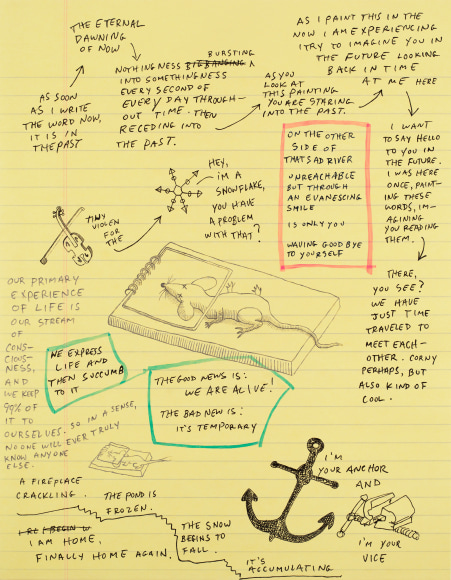 THE ETERNAL
DAWNING
OF NOW
AS SOON
AS I WRITE
THE WORD NOW,
IT IS IN
THE PAST
BURSTING
NOTHINGNESS BIG BANGING
INTO SOMETHINGNESS
EVERY SECOND OF
EVERY DAY THROUGH-
OUT TIME. THEN
RECEDING INTO
THE PAST.
AS YOU
LOOK AT
THIS PAINTING
YOU ARE STARING
INTO THE PAST.
AS I PAINT THIS IN THE
NOW I AM EXPERIENCING
I TRY TO IMAGINE YOU IN
THE FUTURE LOOKING
BACK IN TIME
AT ME HERE
I WANT
TO SAY HELLO
TO YOU IN
THE FUTURE.
I WAS HERE
ONCE, PAINT-
ING THESE
WORDS, IM-
AGINING
YOU READING
THEM.
THERE,
YOU SEE?
WE HAVE
JUST TIME
TRAVELED TO
MEET EACH-
OTHER. CORNY
PERHAPS, BUT
ALSO KIND OF
COOL.
ON THE OTHER
SIDE OF
THAT SAD RIVER
UNREACHABLE
BUT THROUGH
AN EVANESCING
SMILE
IS ONLY YOU
WAVING GOODBYE
TO YOURSELF
TINY
VIOLEN
FOR THE
HEY,
I'M A
SNOWFLAKE,
YOU HAVE
A PROBLEM
WITH THAT?
OUR PRIMARY
EXPERIENCE
OF LIFE IS
OUR STREAM
OF
CONS-
CIOUS-
NESS,
AND
WE KEEP
99% OF
IT TO
OURSELVES. SO IN A SENSE,
NO ONE WILL EVER TRULY
KNOW ANYONE
ELSE.
WE EXPRESS
LIFE AND
THEN SUCCUMB
TO IT
THE GOOD NEWS IS:
WE ARE ALIVE!
THE BAD NEWS IS:
IT'S TEMPORARY
A FIREPLACE
CRACKLING. THE POND IS
FROZEN.
I AM HOME,
FINALLY HOME AGAIN.
THE SNOW
BEGINS TO
FALL.
IT'S
ACCUMULATING
I'M
YOUR ANCHOR
AND
I'M YOUR
VICE